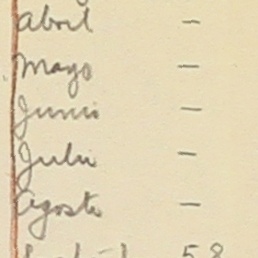 abril —
Mayo —
Junio —
Julio —
Agosto —
58